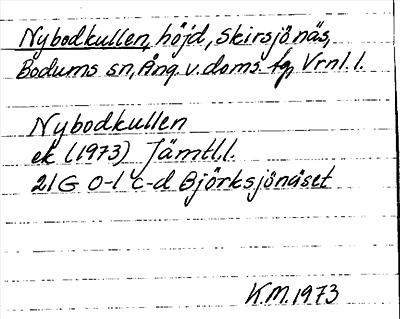 Nybodkullen, höjd, Skirsjönäs,
Bodums sn, Ång. v. doms. fg, Vrnl. l.
Nybodkullen
ek (1973) Jämtl. l.
21G 0-1 c-d Björksjönäset
K.M. 1973